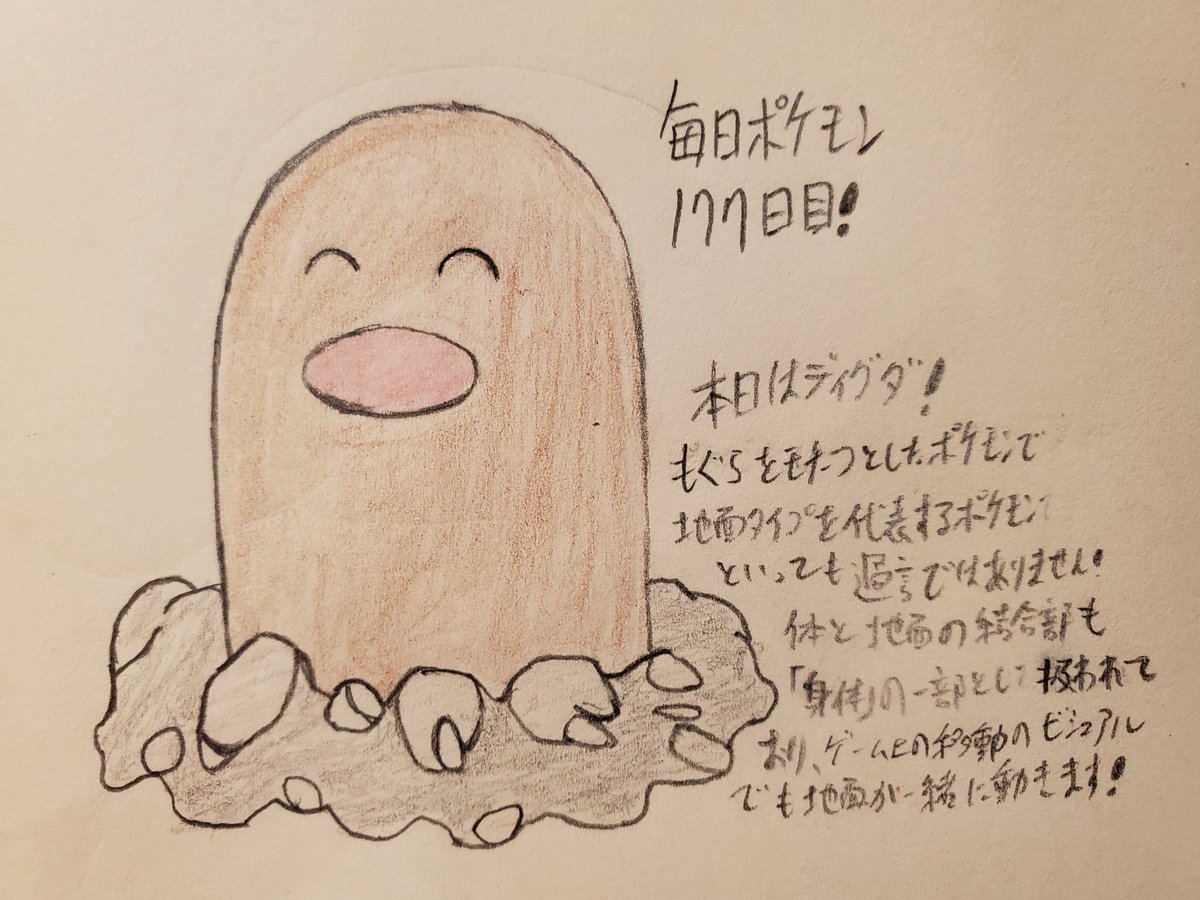 毎日ポケモン
177日目!
本日はディグダ!
もぐらをモチーフとしたポケモンで
地面タイプを代表するポケモン
といっても過言ではありません!
体と地面の結合部も
「身体」の一部として扱われて
おり、ゲーム上の移動のビジュアル
でも地面が一緒に動きます!